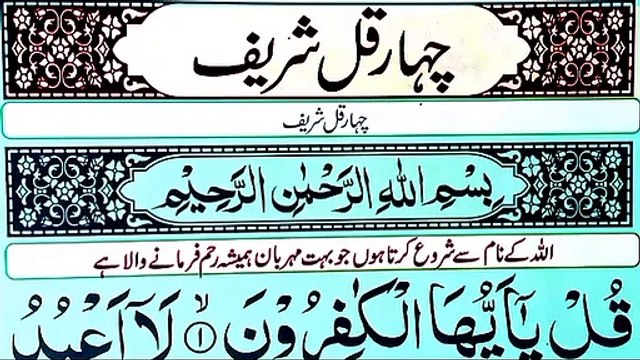 چہار قل شریف
چہار قل شریف
بِسْمِ اللهِ الرَّحْمٰنِ الرَّحِيْمِ
اللہ کے نام سے شروع کرتا ہوں جو بہت مہربان ہمیشہ رحم فرمانے والا ہے
قُلْ يٰۤاَيُّهَا الْكٰفِرُوْنَ ۙ﴿۱﴾ لَاۤ اَعْبُدُ